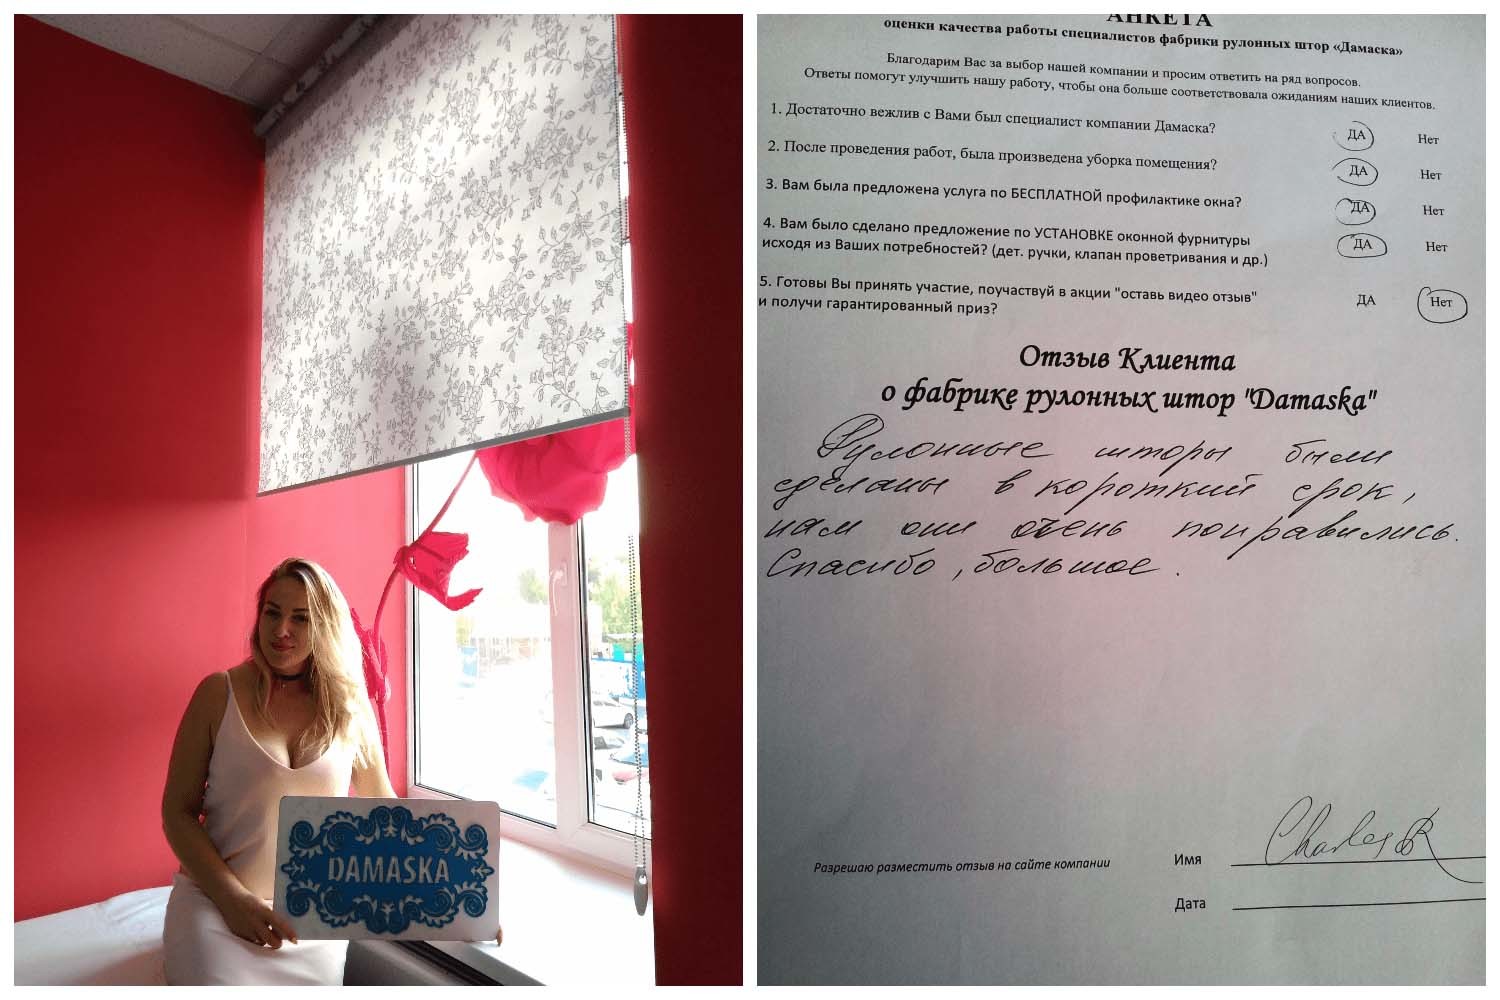 DAMASKA
АНКЕТА
оценки качества работы специалистов фабрики рулонных штор «Дамаска»
Благодарим Вас за выбор нашей компании и просим ответить на ряд вопросов.
Ответы помогут улучшить нашу работу, чтобы она больше соответствовала ожиданиям наших клиентов.
1. Достаточно вежлив с Вами был специалист компании Дамаска? ДА Нет
2. После проведения работ, была произведена уборка помещения? ДА Нет
3. Вам была предложена услуга по БЕСПЛАТНОЙ профилактике окна? ДА Нет
4. Вам было сделано предложение по УСТАНОВКЕ оконной фурнитуры
исходя из Ваших потребностей? (дет. ручки, клапан проветривания и др.) ДА Нет
5. Готовы Вы принять участие, поучаствуй в акции "оставь видео отзыв"
и получи гарантированный приз? ДА Нет
Отзыв Клиента
о фабрике рулонных штор "Damaska"
Рулонные шторы были
сделаны в короткий срок,
нам они очень понравились.
Спасибо, большое.
Разрешаю разместить отзыв на сайте компании Имя Charles R
Дата